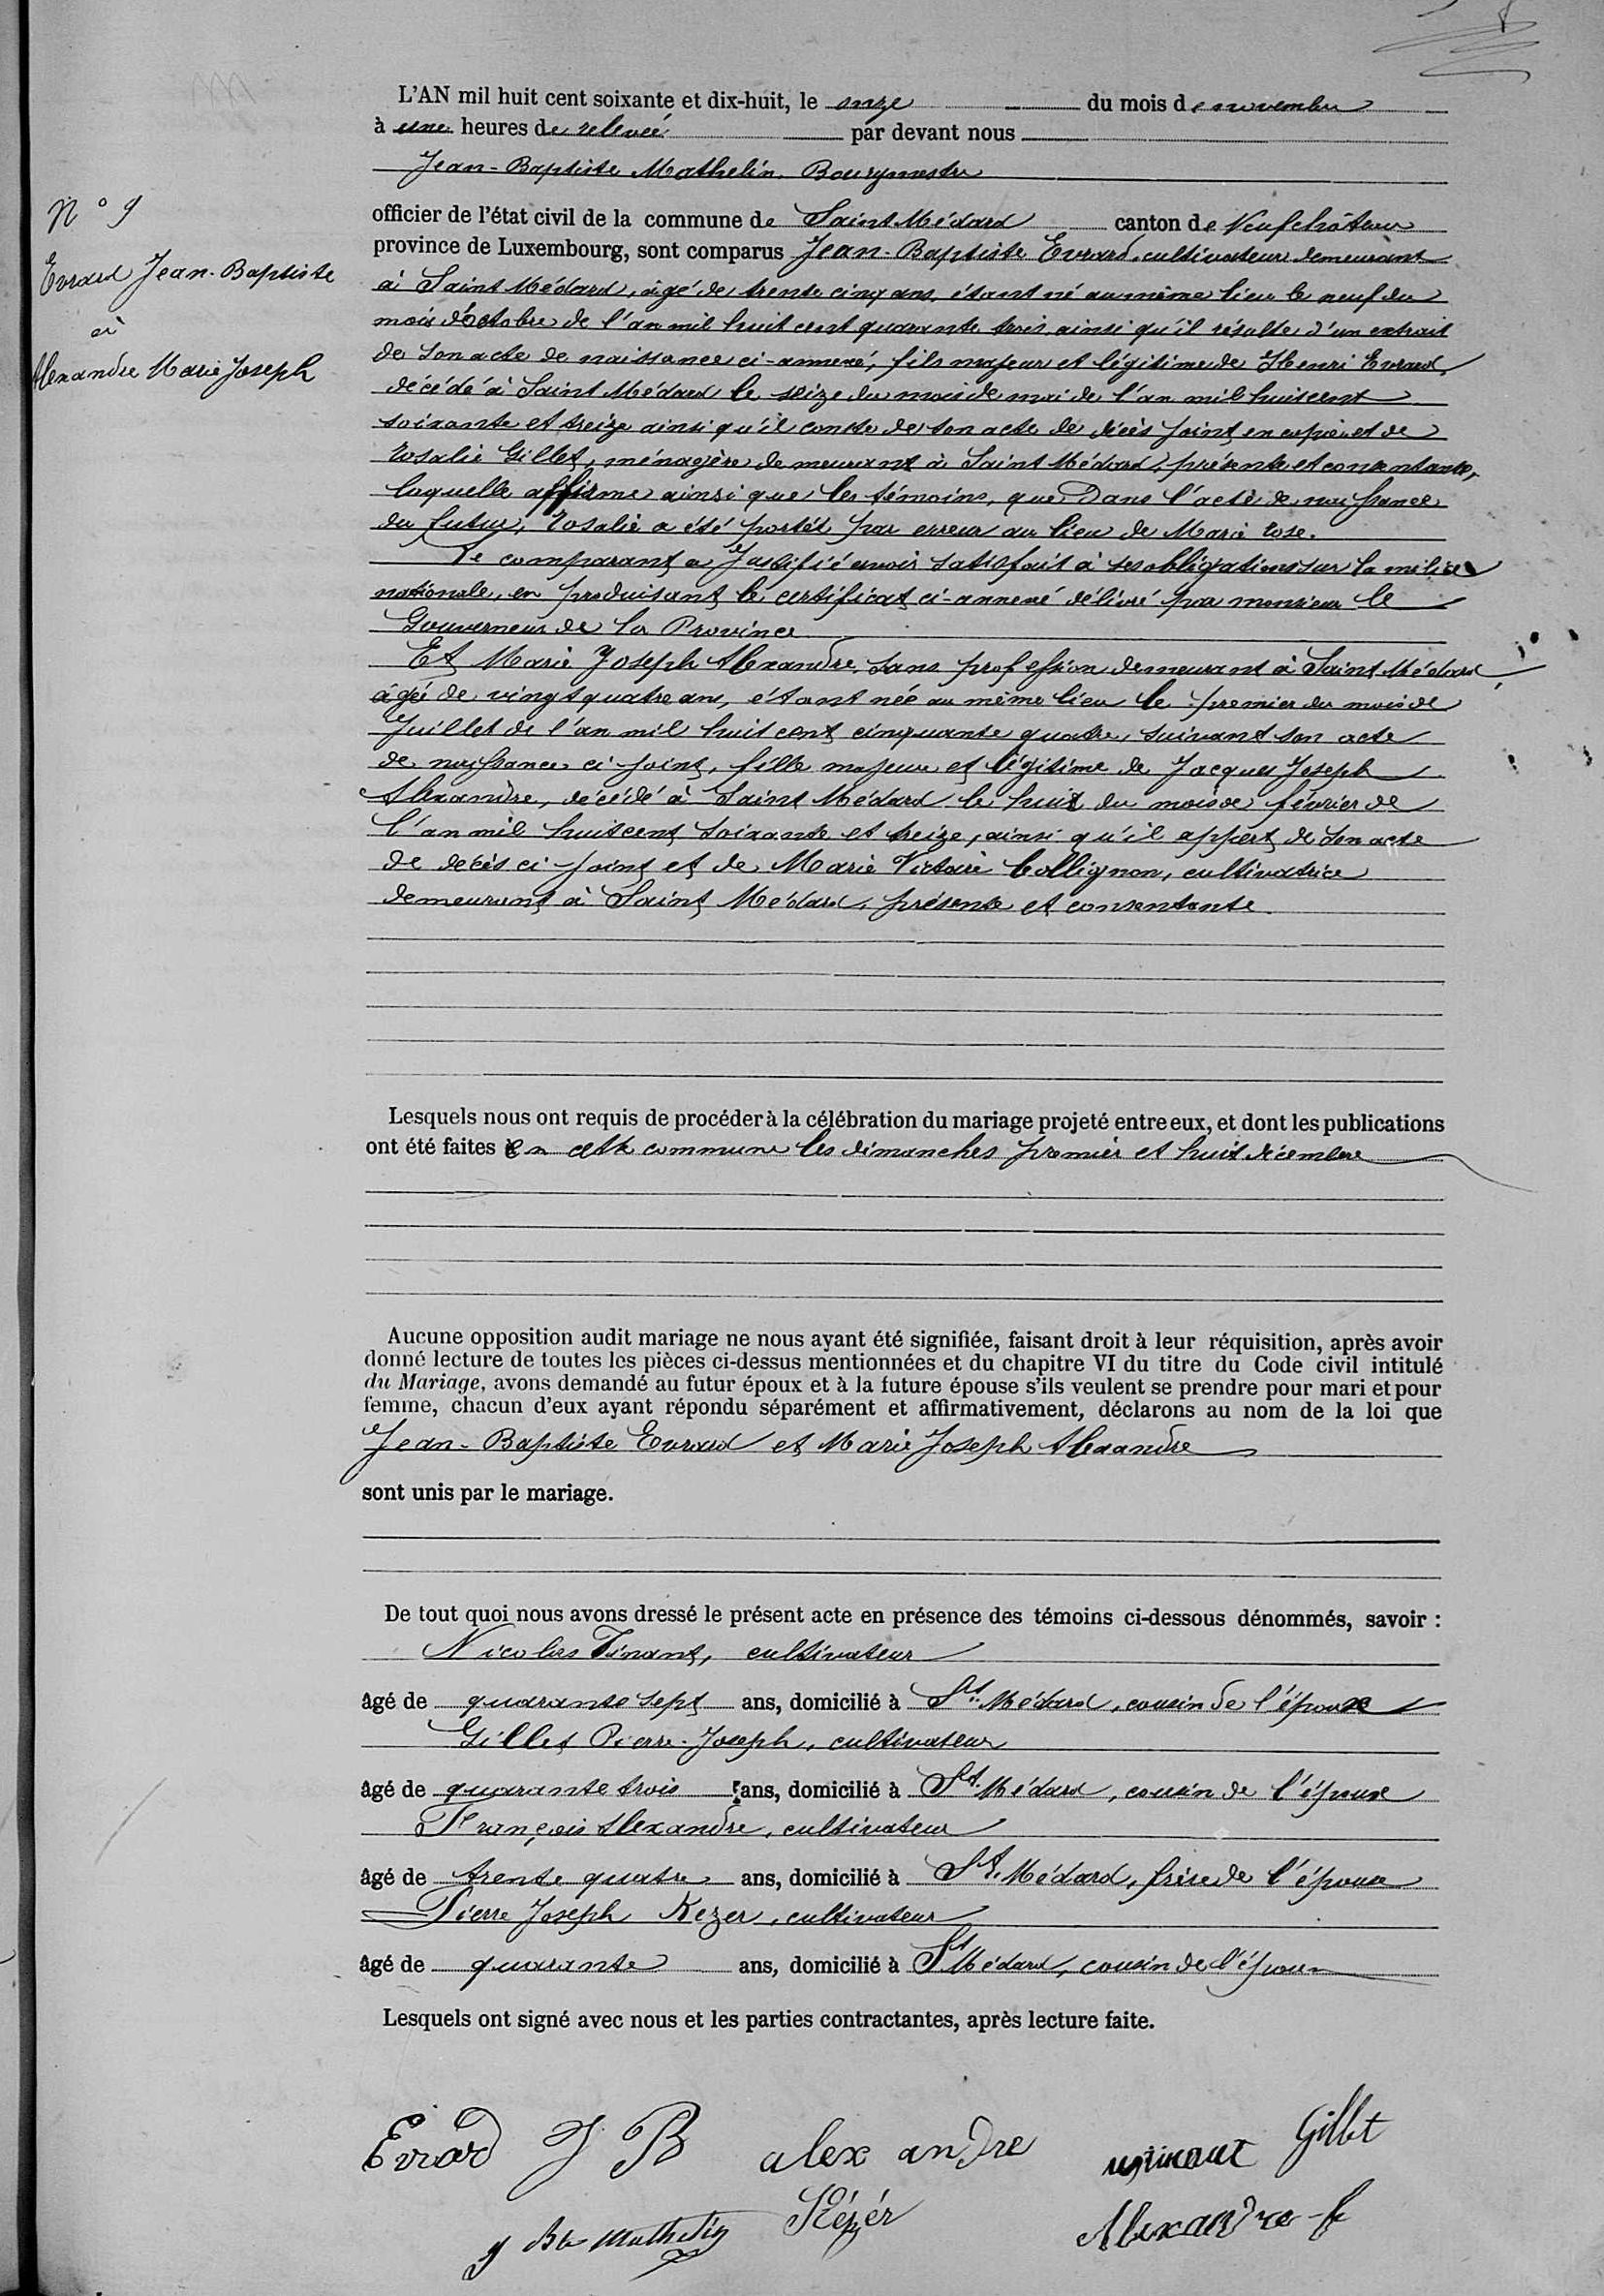 L'AN mil huit cent soixante et dix-huit, le onze du mois de novembre
à une heures de relevée par devant nous
Jean-Baptiste Mathelin Bourgmestre
N° 9
officier de l'état civil de la commune de Saint Médard canton de Neufchâteau
province de Luxembourg, sont comparus Jean-Baptiste Evrard, cultivateur demeurant
Evrard Jean-Baptiste
à Saint Médard, âgé de trente cinq ans, étant né au même lieu le neuf du
mois d'octobre de l'an mil huit cent quarante trois ainsi qu'il résulte d'un extrait
et
de son acte de naissance ci-annexé, fils majeur et légitime de Henri Evrard,
Alexandre Marie Joseph
décédé à Saint Médard le seize du mois de mai de l'an mil huit cent
soixante et treize ainsi qu'il conste de son acte de décès joint en copie et de
Rosalie Gillet, ménagère demeurant à Saint Médard, présente et consentante,
laquelle affirme ainsi que les témoins, que dans l'acte de naissance
du futur, Rosalie a été portée par erreur au lieu de Marie Rose.
Le comparant a justifié avoir satisfait à ses obligations sur la milice
nationale, en produisant le certificat ci-annexé délivré par monsieur le
Gouverneur de la Province
Et Marie Joseph Alexandre, sans profession demeurant à Saint Médard,
âgée de vingt quatre ans, étant née au même lieu le premier du mois de
Juillet de l'an mil huit cent cinquante quatre, suivant son acte
de naissance ci joint, fille majeure et légitime de Jacques Joseph
Alexandre, décédé à Saint Médard le huit du mois de février de
l'an mil huit cent soixante et treize, ainsi qu'il appert de son acte
de décès ci joint et de Marie Victoire Collignon, cultivatrice
demeurant à Saint Médard, présente et consentante.
Lesquels nous ont requis de procéder à la célébration du mariage projeté entre eux, et dont les publications
ont été faites en cette commune les dimanches premier et huit décembre
Aucune opposition audit mariage ne nous ayant été signifiée, faisant droit à leur réquisition, après avoir
donné lecture de toutes les pièces ci-dessus mentionnées et du chapitre VI du titre du Code civil intitulé
du Mariage, avons demandé au futur époux et à la future épouse s'ils veulent se prendre pour mari et pour
femme, chacun d'eux ayant répondu séparément et affirmativement, déclarons au nom de la loi que
Jean-Baptiste Evrard et Marie Joseph Alexandre
sont unis par le mariage.
De tout quoi nous avons dressé le présent acte en présence des témoins ci-dessous dénommés, savoir :
Nicolas Tinant, cultivateur
âgé de quarante sept ans, domicilié à St. Médard, cousin de l'épouse
Gillet Pierre-Joseph, cultivateur
âgé de quarante trois ans, domicilié à St. Médard, cousin de l'époux
François Alexandre, cultivateur
âgé de trente quatre ans, domicilié à St. Médard, frère de l'épouse
Pierre Joseph Kezer, cultivateur
âgé de quarante ans, domicilié à St Médard, cousin de l'époux
Lesquels ont signé avec nous et les parties contractantes, après lecture faite.
Evrard J B alexandre Gillet
J Bte Mathelin Kézér Alexandre f